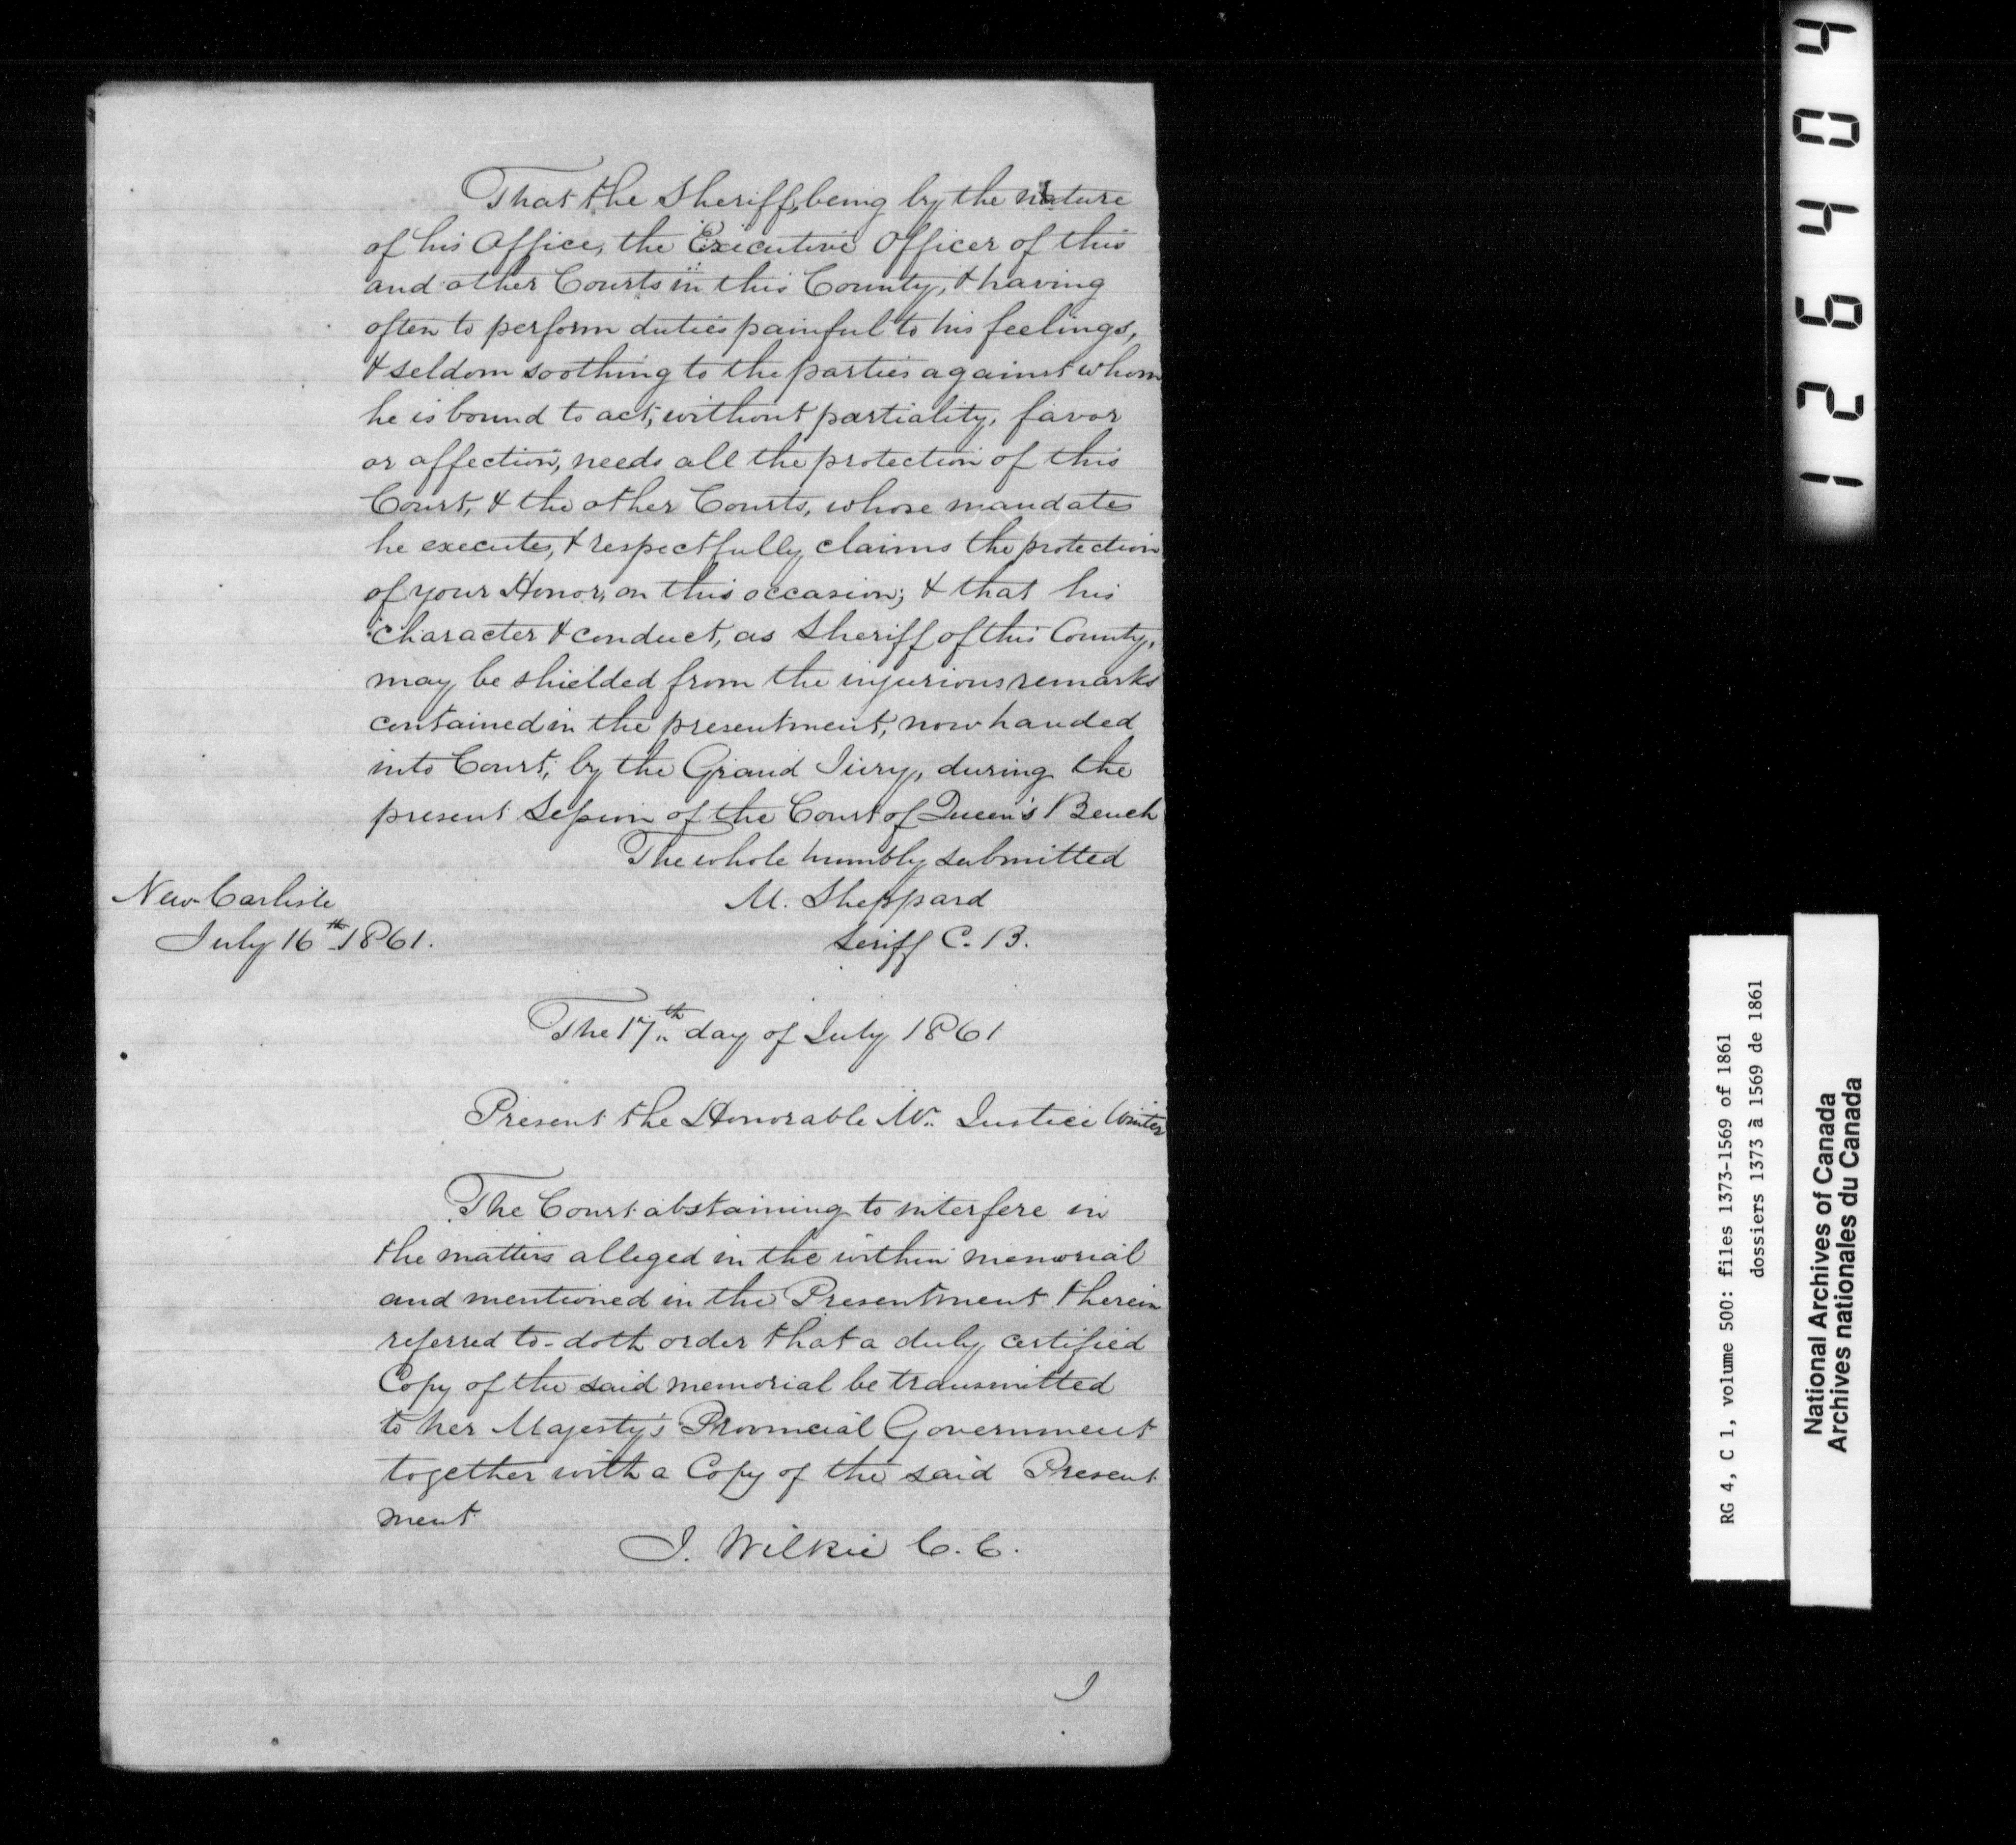 That the Sheriff, being by the nature
of his Office, the Executive Officer of this
and other Courts in this County, & having
often to perform duties painful to his feelings,
& seldom soothing to the parties against whom
he is bound to act, without partiality, favor
or affection, needs all the protection of this
Court, & the other Courts, whose mandates
he executes, & respectfully claims the protection
of your Honor, on this occasion; & that his
character & conduct, as Sheriff of this County,
may be shielded from the injurious remarks
contained in the presentment, now handed
into Court, by the Grand Jury, during the
present Session of the Court of Queen's Bench
The whole humbly submitted
New Carlisle
M. Sheppard
July 16th 1861.
Seriff C. B.
The 17th day of July 1861
Present the Honorable Mr. Justice Winter
The Court abstaining to interfere in
the matters alleged in the within memorial
and mentioned in the Presentment therein
referred to - doth order that a duly certified
Copy of the said memorial be transmitted
to her Majesty's Provincial Government
together with a Copy of the said Present
ment
J. Wilkie C. C.
126404
RG 4, C 1, volume 500: files 1373-1569 of 1861
dossiers 1373 à 1569 de 1861
National Archives of Canada
Archives nationales du Canada